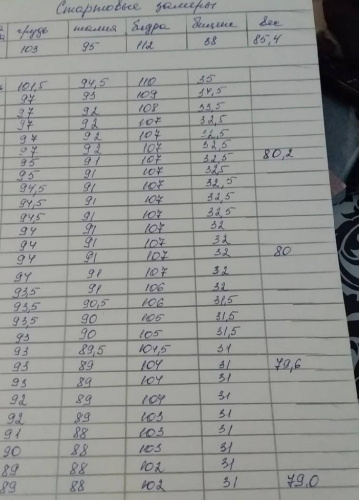 Стартовые замеры
грудь талия бедра бицепс вес
103 95 112 38 85,4
101,5 94,5 110 35
97 93 109 34,5
97 92 108 33,5
97 92 107 32,5
97 92 107 32,5
97 92 107 32,5
95 91 107 32,5 80,2
95 91 107 32,5
94,5 91 107 32,5
94,5 91 107 32,5
94,5 91 107 32,5
94 91 107 32
94 91 107 32
94 91 107 32 80
94 91 107 32
93,5 91 106 32
93,5 90,5 106 31,5
93,5 90 105 31,5
93 90 105 31,5
93 89,5 104,5 31
93 89 104 31 79,6
93 89 104 31
92 89 104 31
92 89 103 31
91 88 103 31
90 88 103 31
89 88 102 31
89 88 102 31 79.0